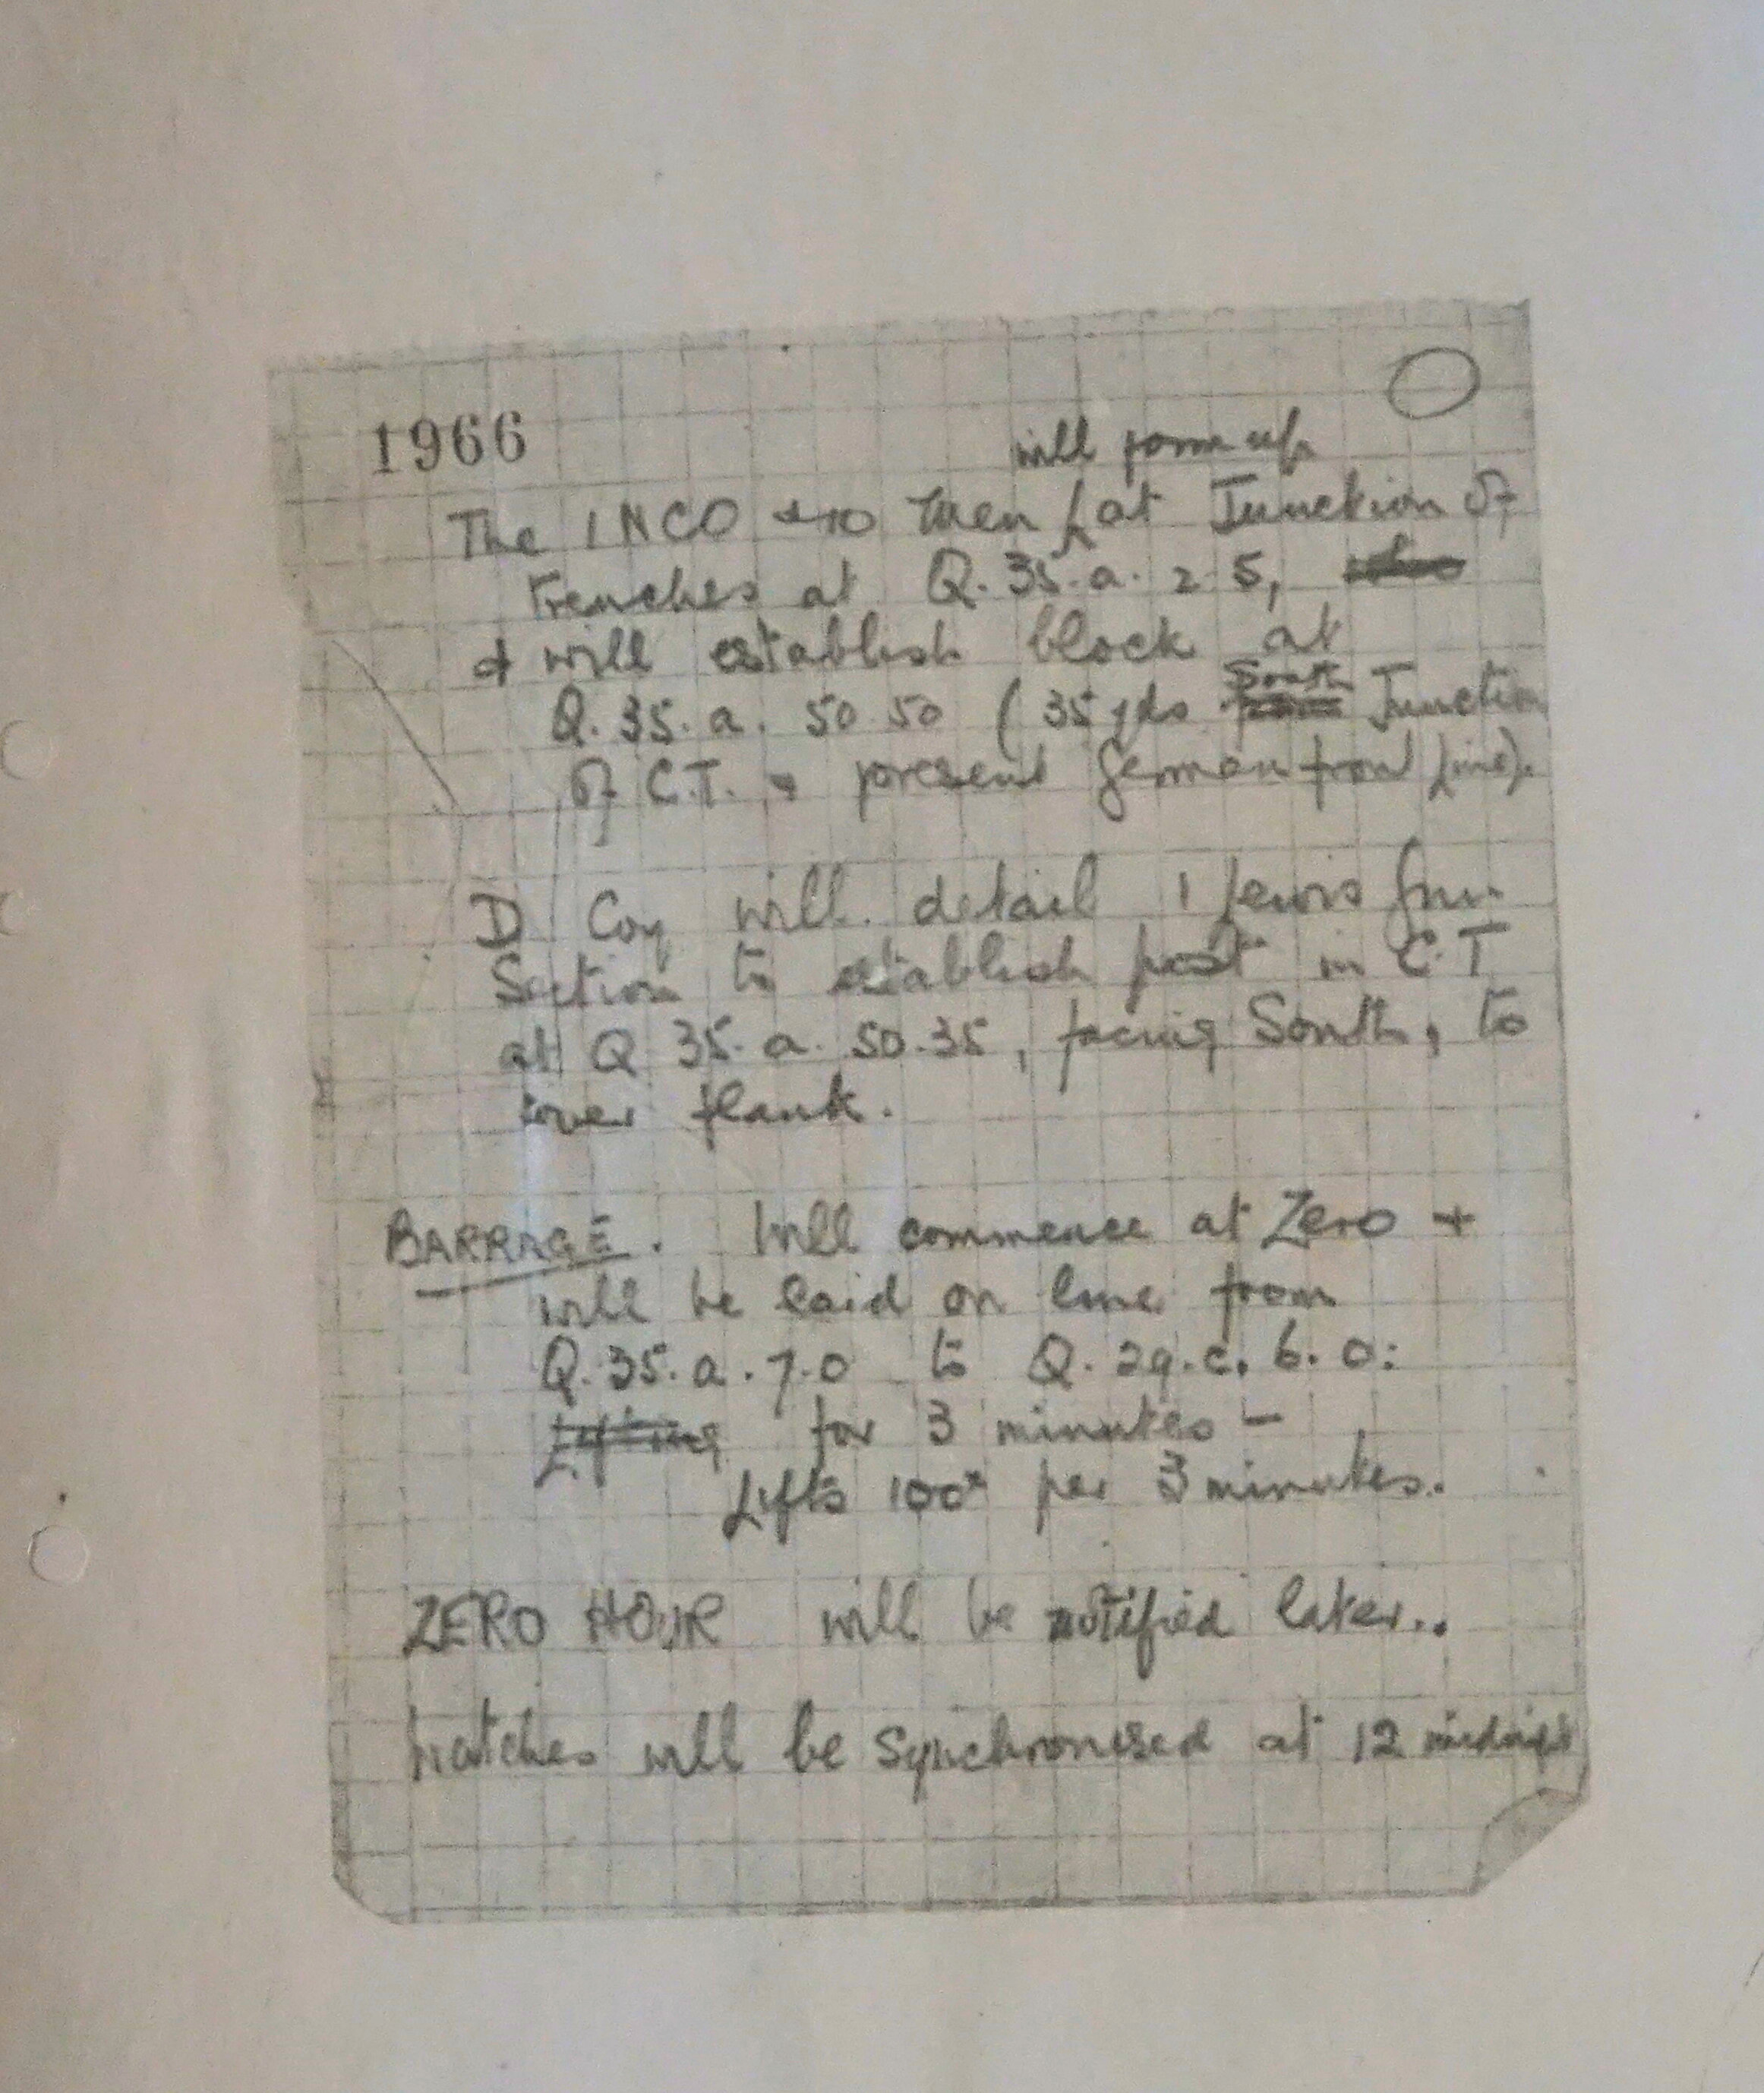 1966
will form up
The 1 NCO & 10 men at Junction of
trenches at Q. 35. a. 2. 5,
& will establish block at
South
Q. 35. a. 50.50 (35 yds Junction
of C.T. & present German front line).
D Coy will detail 1 Lewis Gun
Section to establish post in C.T
at Q 35. a. 50.35, facing South, to
cover flank.
BARRAGE. Will commence at Zero +
will be laid on line from
Q. 35. a. 7.0 to Q. 29. c. 6. 0:
Lifting for 3 minutes -
Lifts 100x per 3 minutes.
ZERO HOUR will be notified later..
Watches will be synchronised at 12 midnight